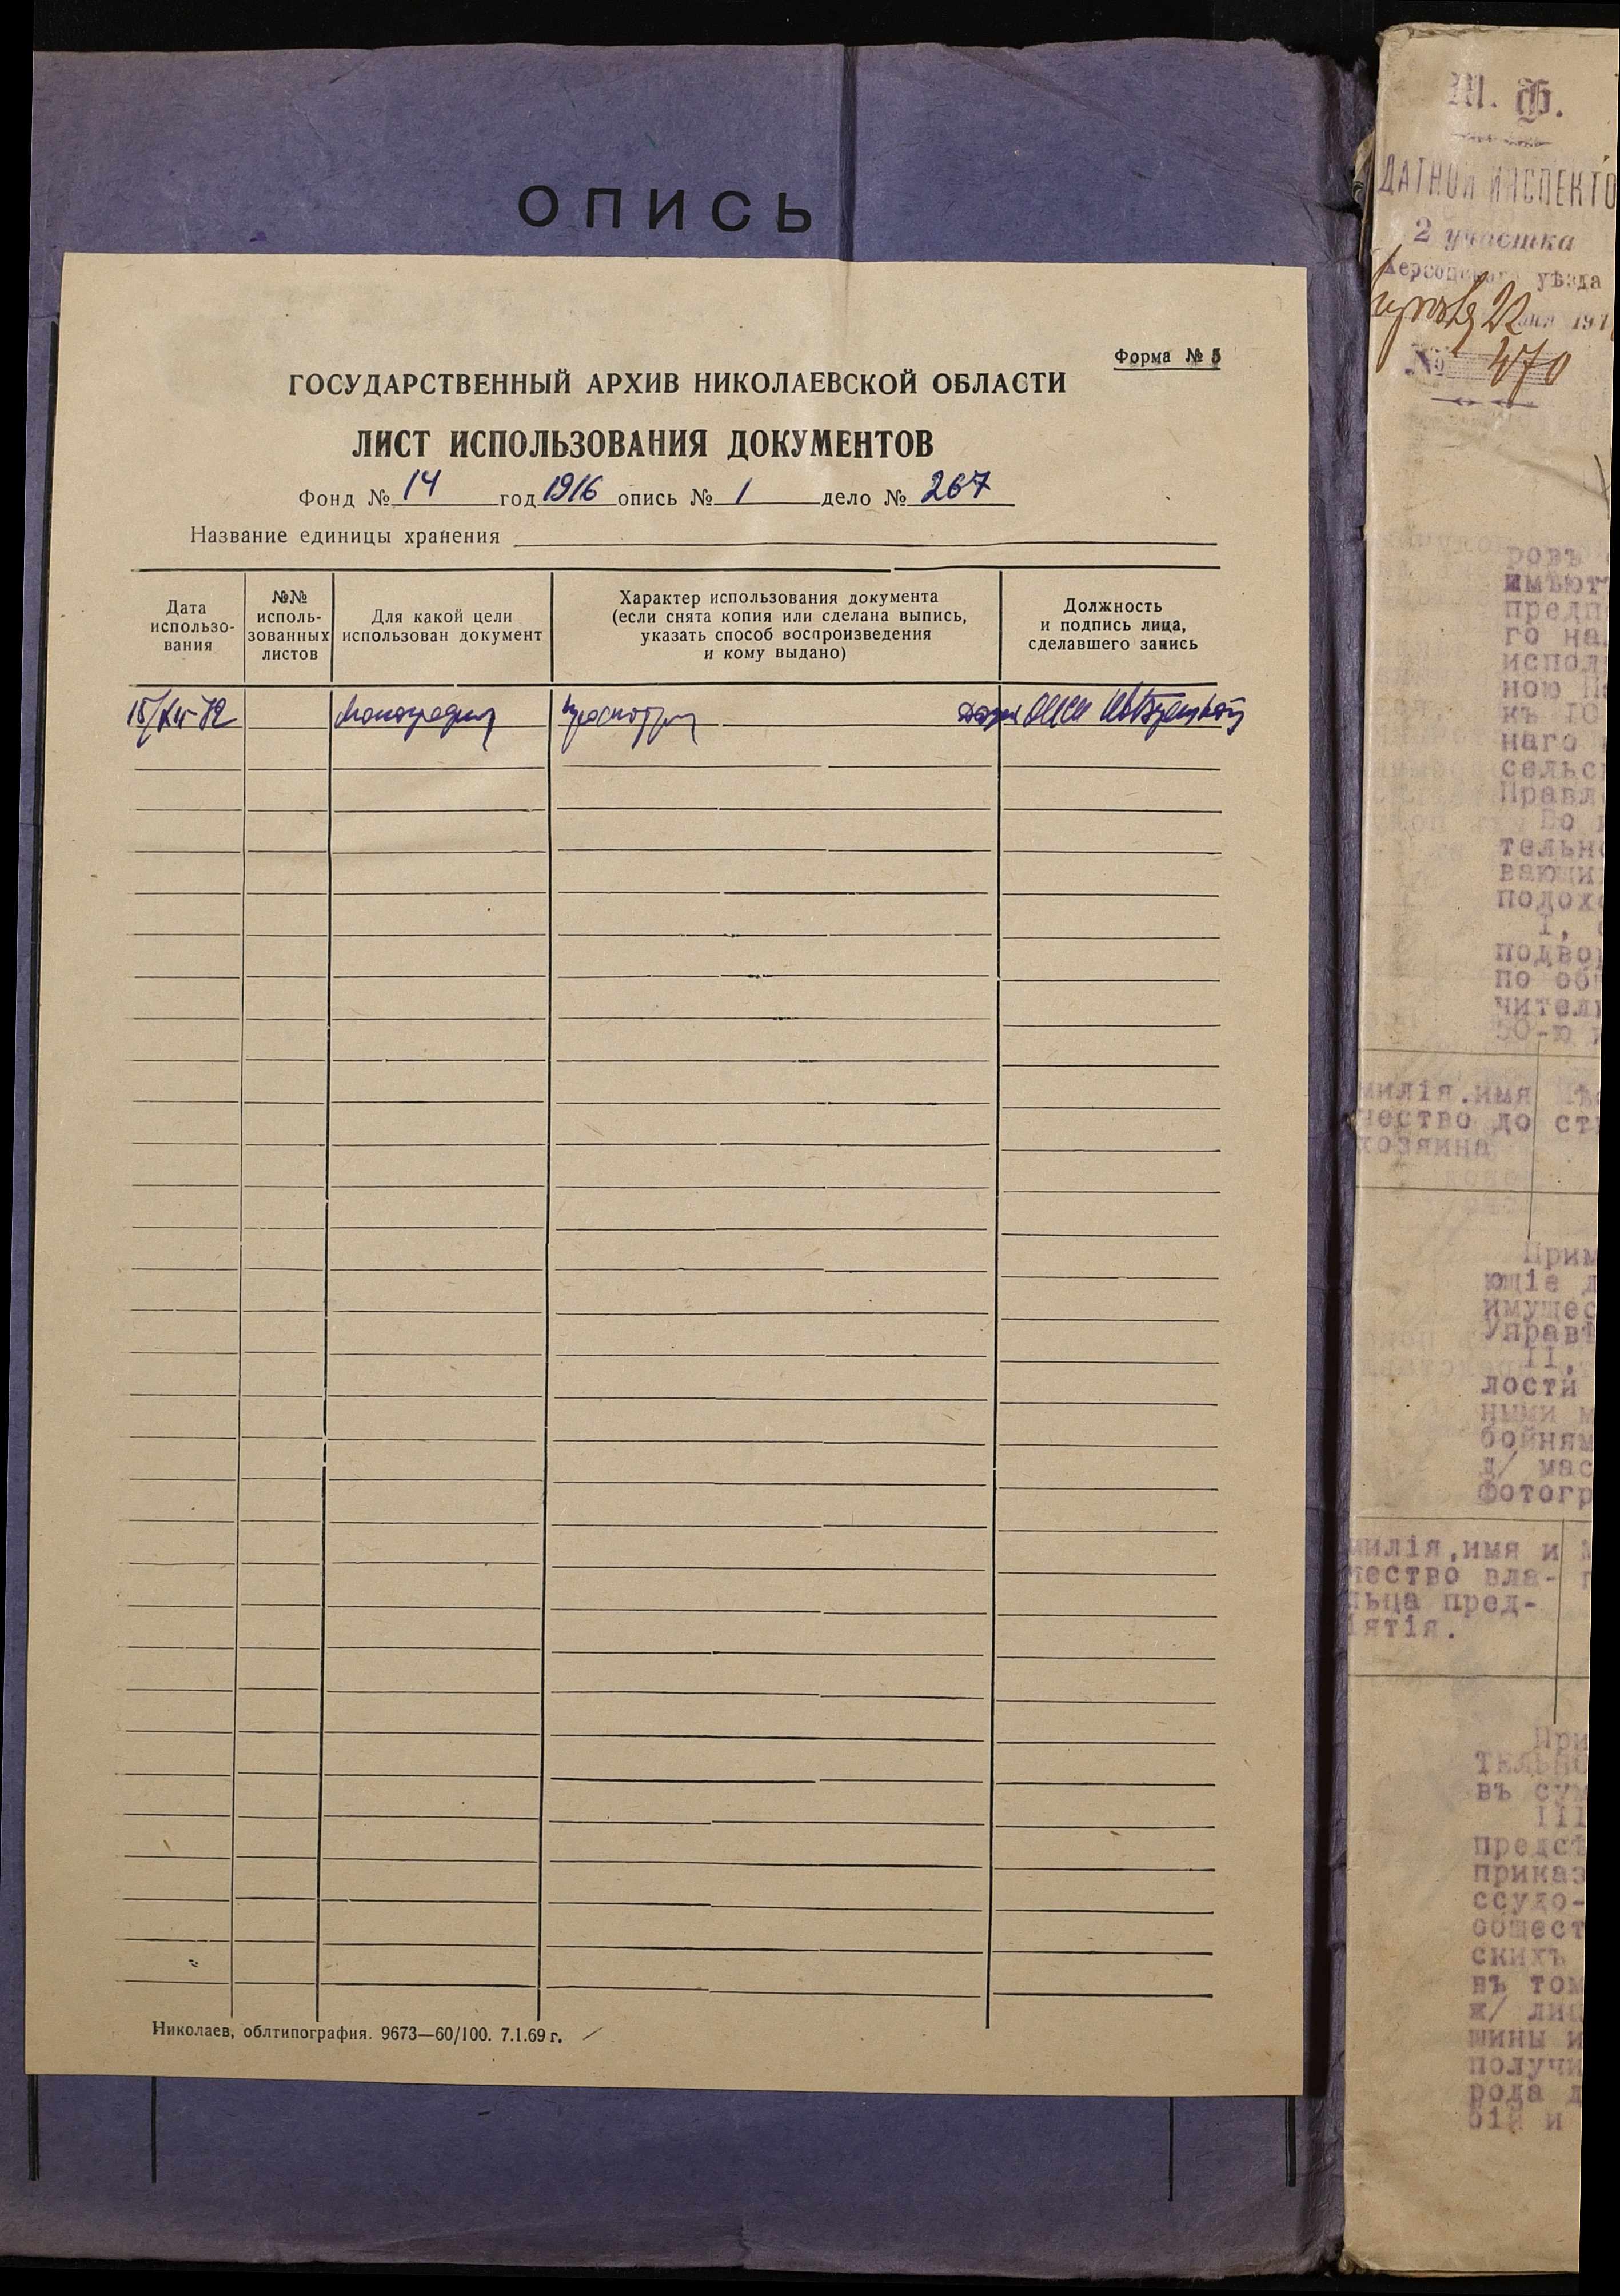 ОПИСЬ
Форма № 5
ГОСУДАРСТВЕННЫЙ АРХИВ НИКОЛАЕВСКОЙ ОБЛАСТИ
ЛИСТ ИСПОЛЬЗОВАНИЯ ДОКУМЕНТОВ
Фонд № 14 год 1916 опись № 1 дело № 267
Название единицы хранения
Дата
использо-
вания
№№
исполь-
зованных
листов
Для какой цели
использован документ
Характер использования документа
(если снята копия или сделана выпись,
указать способ воспроизведения
и кому выдано)
Должность
и подпись лица,
сделавшего запись
Монография просмотр
Николаев, облтипография. 9673—60/100. 7.1.69 г.
М. Ф.
ДАТНОЙ ИНСПЕКТО
2 участка
Херсонскаго уѣзда
22
№ 470
ровъ
имѣют
предп
го на
испол
ною П
къ 10
наго
сельс
Правл
Во
тельн
вающи
подох
I,
подво
по об
чител
50-ю
милія.имя
чество до
хозяина
Прим
ющіе д
имущес
Управ
II,
лости
ными м
бойням
д/ мас
фотогр
милія,имя и
чество вла-
льца пред-
іятія.
При
тельно
въ сум
III
предст
приказ
ссудо-
общест
скихъ
въ том
ж/ лиц
шины и
получи
рода д
бій и